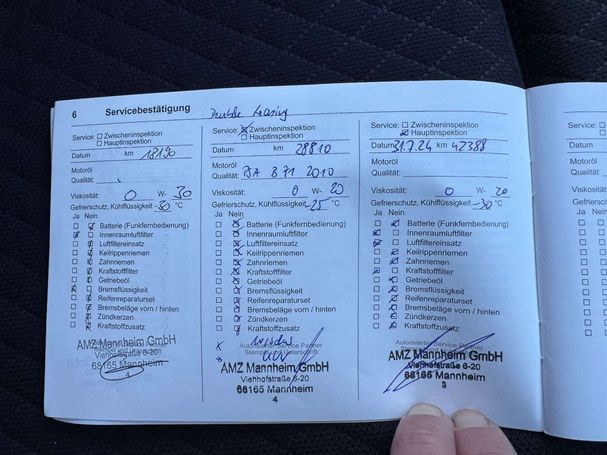 6 Servicebestätigung
Service: Zwischeninspektion
Hauptinspektion
Datum km 18190
Motoröl
Qualität:
Viskosität: 0 W- 30
Gefrierschutz, Kühlflüssigkeit -30 °C
Ja Nein
Batterie (Funkfernbedienung)
Innenraumluftfilter
Luftfiltereinsatz
Keilrippenriemen
Zahnriemen
Kraftstofffilter
Getriebeöl
Bremsflüssigkeit
Reifenreparaturset
Bremsbeläge vorn / hinten
Zündkerzen
Kraftstoffzusatz
AMZ Mannheim GmbH
Viehhofstraße 6-20
68165 Mannheim
4
Service: Zwischeninspektion
Hauptinspektion
Datum km 28810
Motoröl
Qualität: PSA B71 2010
Viskosität: 0 W- 20
Gefrierschutz, Kühlflüssigkeit -25 °C
Ja Nein
Batterie (Funkfernbedienung)
Innenraumluftfilter
Luftfiltereinsatz
Keilrippenriemen
Zahnriemen
Kraftstofffilter
Getriebeöl
Bremsflüssigkeit
Reifenreparaturset
Bremsbeläge vorn / hinten
Zündkerzen
Kraftstoffzusatz
AMZ Mannheim GmbH
Viehhofstraße 6-20
68165 Mannheim
4
Service: Zwischeninspektion
Hauptinspektion
Datum 31.7.24 km 42388
Motoröl
Qualität:
Viskosität: 0 W- 20
Gefrierschutz, Kühlflüssigkeit -30 °C
Ja Nein
Batterie (Funkfernbedienung)
Innenraumluftfilter
Luftfiltereinsatz
Keilrippenriemen
Zahnriemen
Kraftstofffilter
Getriebeöl
Bremsflüssigkeit
Reifenreparaturset
Bremsbeläge vorn / hinten
Zündkerzen
Kraftstoffzusatz
Autorisierter Service Partner
AMZ Mannheim GmbH
Viehhofstraße 6-20
68165 Mannheim
3